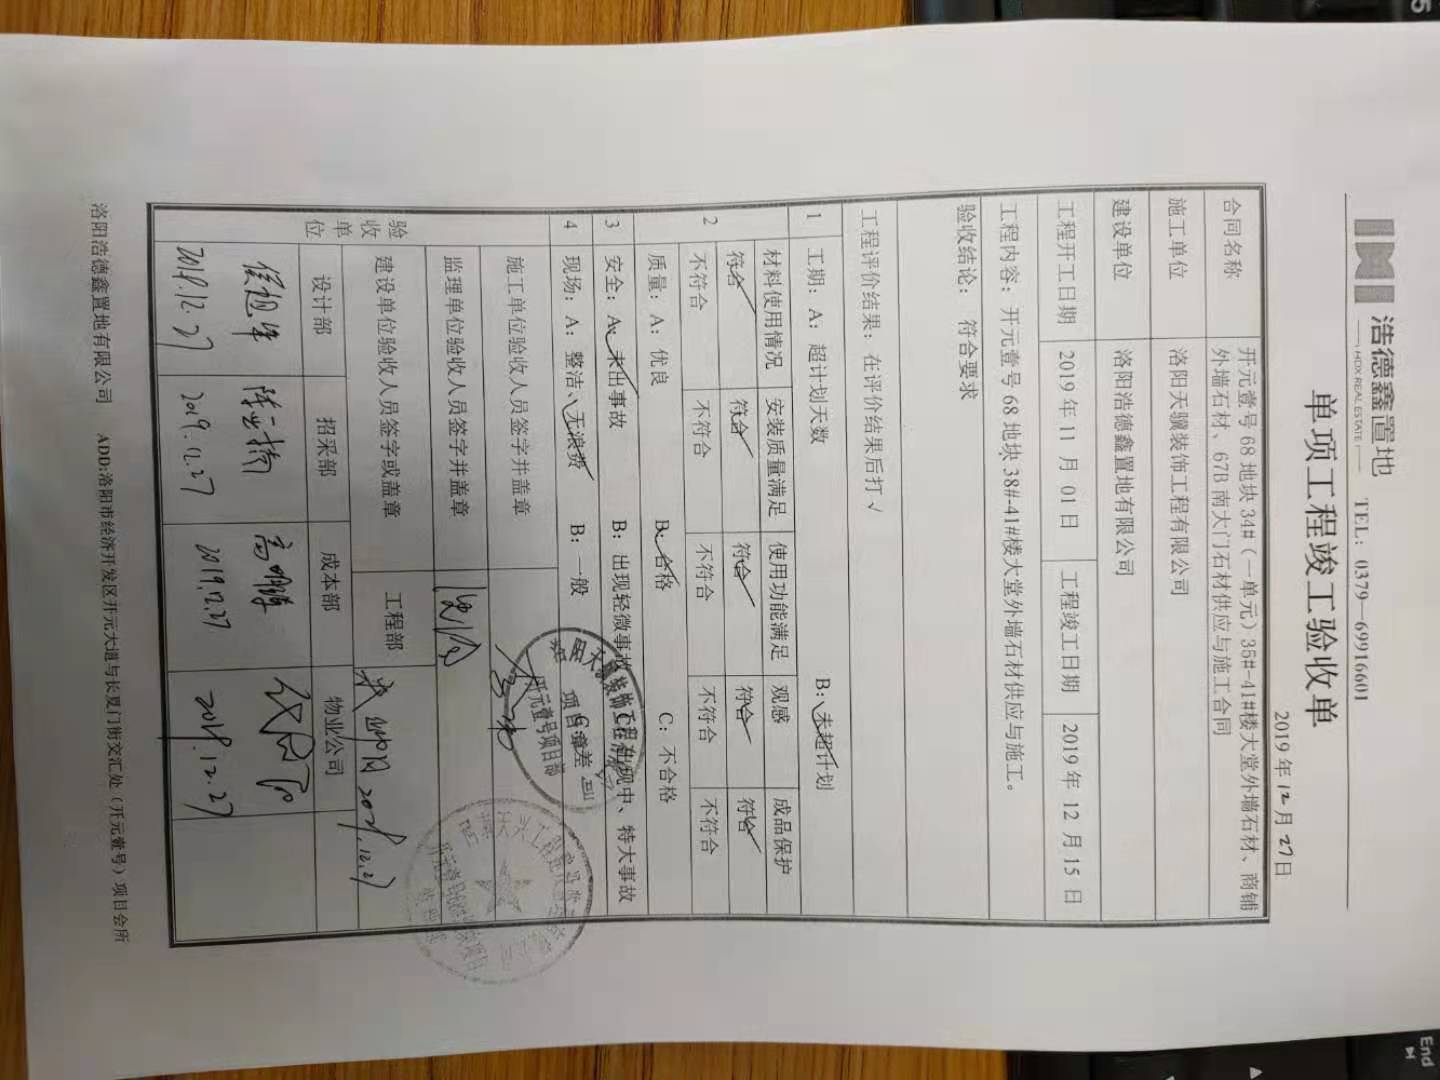 浩德鑫置地
HDX REAL ESTATE
TEL: 0379—69916601
单项工程竣工验收单
2019年12月27日
合同名称 开元壹号68地块34#(一单元)35#-41#楼大堂外墙石材、商铺
外墙石材、67B南大门石材供应与施工合同
施工单位 洛阳天骥装饰工程有限公司
建设单位 洛阳浩德鑫置地有限公司
工程开工日期 2019年11月01日 工程竣工日期 2019年12月15日
工程内容:开元壹号68地块38#-41#楼大堂外墙石材供应与施工。
验收结论: 符合要求
工程评价结果:在评价结果后打√
1 工期:A:超计划天数 B:未超计划
2 材料使用情况 安装质量满足 使用功能满足 观感 成品保护
符合 符合 符合 符合 符合
不符合 不符合 不符合 不符合 不符合
质量:A:优良 B:合格 C:不合格
3 安全:A:未出事故 B:出现轻微事故 C:出现中、特大事故
4 现场:A:整洁、无浪费 B:一般 C:差
施工单位验收人员签字并盖章
开元壹号项目部
监理单位验收人员签字并盖章
建设单位验收人员签字或盖章 工程部
验收单位 设计部 招采部 成本部 物业公司
2019.12.27 2019.12.27 2019.12.27 2019.12.27
洛阳浩德鑫置地有限公司 ADD:洛阳市经济开发区开元大道与长夏门街交汇处(开元壹号)项目会所
End